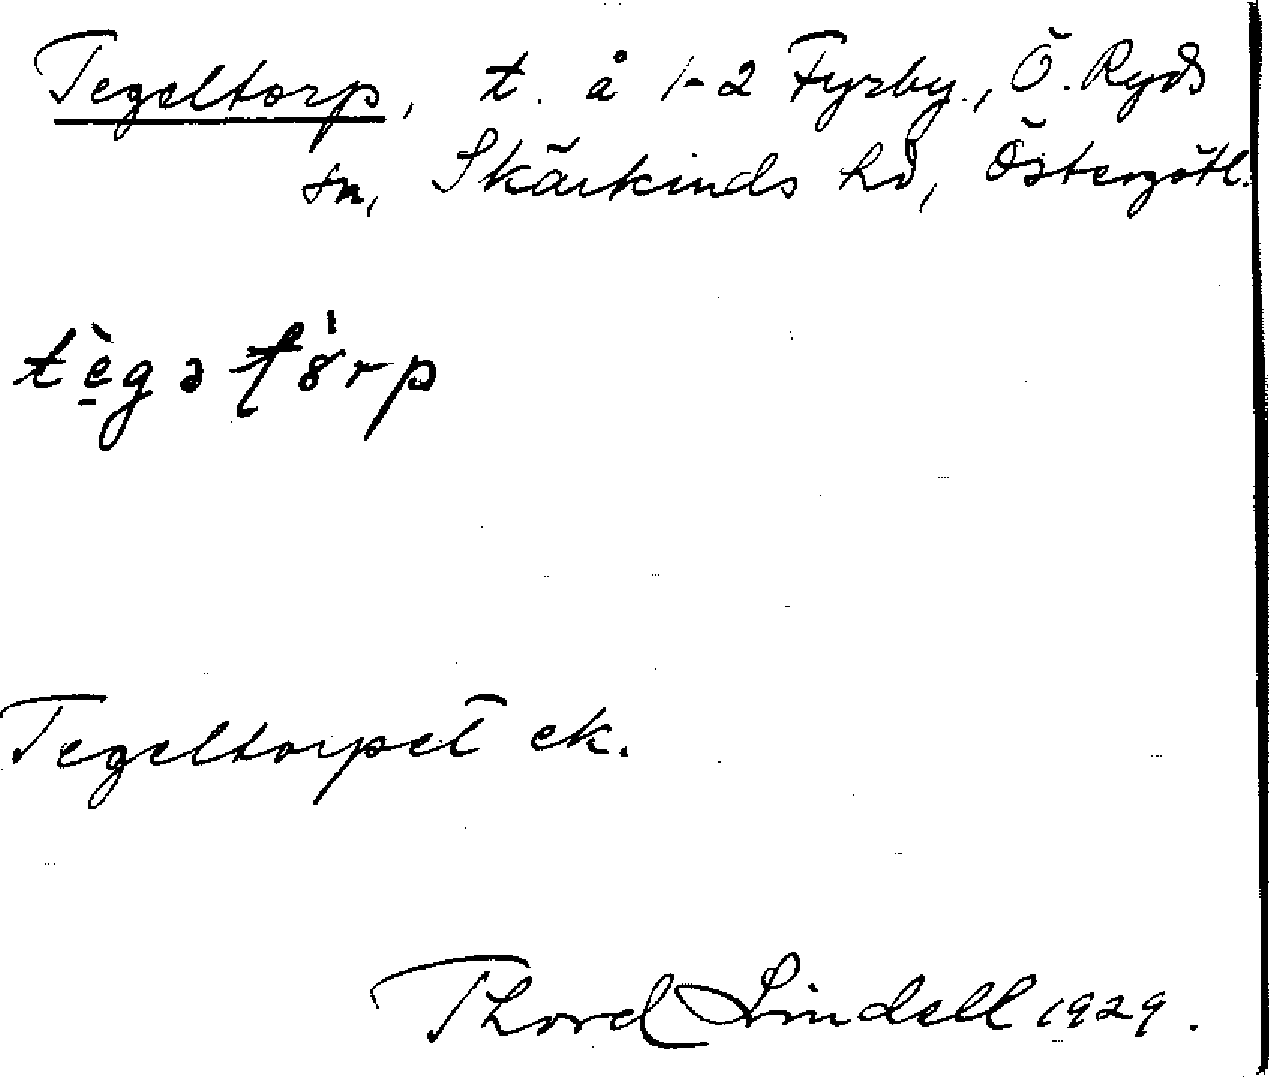 Tegeltorp, t. å 1-2 Fyrby., Ö. Ryds
sn, Skärkinds hd, Östergötl.
Tegeltorpet ek.
Thord Lindell 1929.